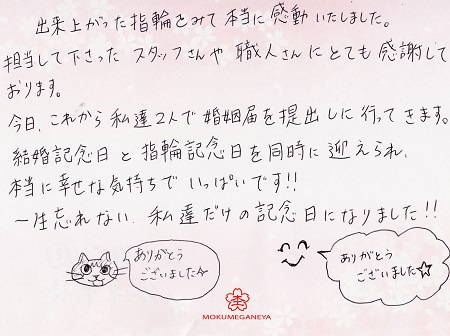 出来上がった指輪をみて本当に感動いたしました。
担当して下さった スタッフさんや 職人さんにとても感謝して
おります。
今日、これから私達2人で婚姻届を提出しに行ってきます。
結婚記念日と指輪記念日を同時に迎えられ、
本当に幸せな気持ちでいっぱいです!!
一生忘れない、私達だけの記念日になりました!!
ありがとう
ございました
ありがとう
ございました☆
MOKUMEGANEYA